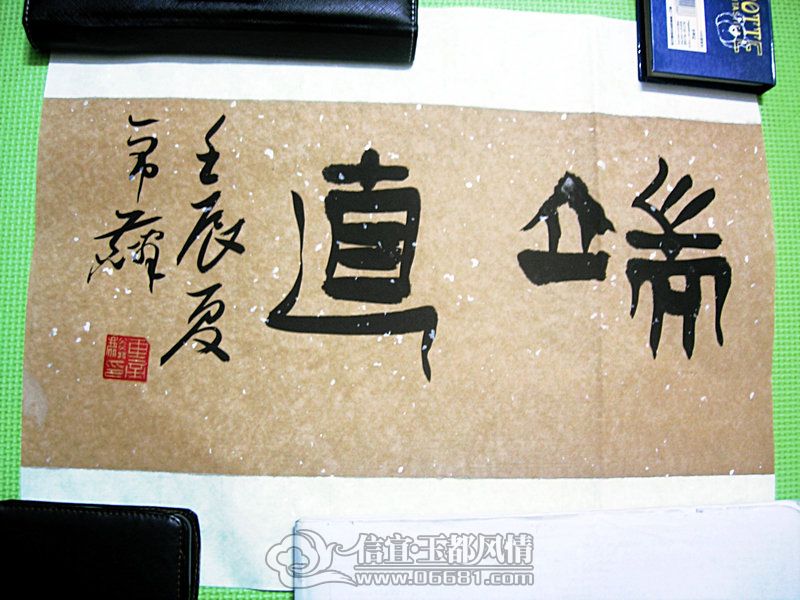 端直
壬辰夏
OTTE
信宜·玉都风情
www.06681.com